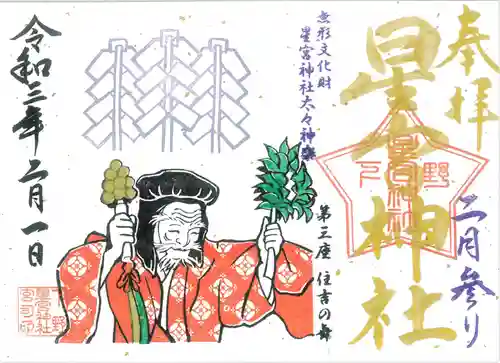 奉拝
星宮神社
二月参り
無形文化財
星宮神社太々神楽
第三座 住吉の舞
令和三年二月一日
下野
星宮神社